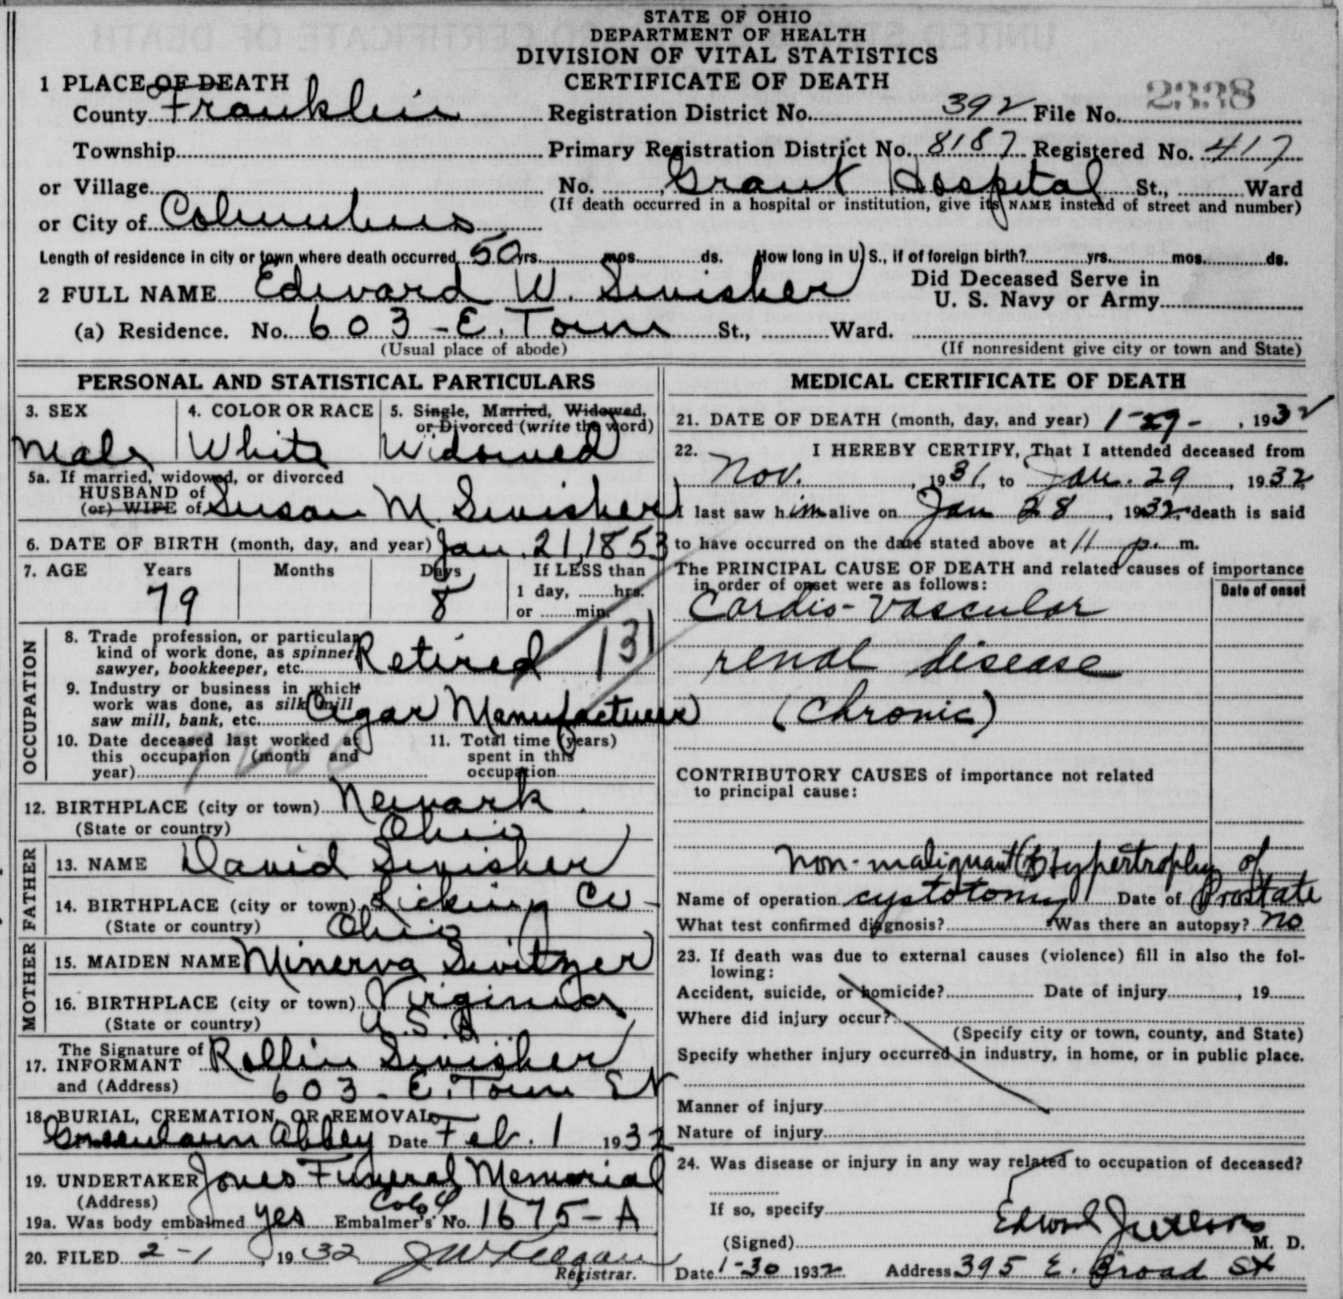 STATE OF OHIO
DEPARTMENT OF HEALTH
DIVISION OF VITAL STATISTICS
CERTIFICATE OF DEATH
2338
1 PLACE OF DEATH
County Franklin Registration District No. 392 File No.
Township Primary Registration District No. 8187 Registered No. 417
or Village No. Grant Hospital St., Ward
(If death occurred in a hospital or institution, give its NAME instead of street and number)
or City of Columbus
Length of residence in city or town where death occurred 50 yrs. mos. ds. How long in U. S., if of foreign birth? yrs. mos. ds.
2 FULL NAME Edward W. Swisher Did Deceased Serve in U. S. Navy or Army
(a) Residence. No. 603 - E. Town St., Ward.
(Usual place of abode) (If nonresident give city or town and State)
PERSONAL AND STATISTICAL PARTICULARS
3. SEX 4. COLOR OR RACE 5. Single, Married, Widowed, or Divorced (write the word)
Male White Widowed
5a. If married, widowed, or divorced
HUSBAND of
(or) WIFE of Susan M Swisher
6. DATE OF BIRTH (month, day, and year) Jan. 21, 1853
7. AGE Years Months Days If LESS than
79 8 1 day, hrs.
or min.
OCCUPATION
8. Trade profession, or particular
kind of work done, as spinner,
sawyer, bookkeeper, etc. Retired 131
9. Industry or business in which
work was done, as silk mill
saw mill, bank, etc. Cigar Manufacturer
10. Date deceased last worked at this occupation (month and year)
11. Total time (years) spent in this occupation
12. BIRTHPLACE (city or town) Newark
(State or country) Ohio
FATHER
13. NAME David Swisher
14. BIRTHPLACE (city or town) Licking Co -
(State or country) Ohio
MOTHER
15. MAIDEN NAME Minerva Switzer
16. BIRTHPLACE (city or town) Virginia
(State or country) U.S.A
17. The Signature of INFORMANT Rollin Swisher
and (Address) 603 - E. Town St
18. BURIAL, CREMATION, OR REMOVAL
Greenlawn Abbey Date Feb. 1 1932
19. UNDERTAKER Jones Funeral Memorial
(Address) Cols O
19a. Was body embalmed yes Embalmer's No. 1675-A
20. FILED 2-1, 1932 J W Keegan
Registrar.
MEDICAL CERTIFICATE OF DEATH
21. DATE OF DEATH (month, day, and year) 1-29-, 1932
22. I HEREBY CERTIFY, That I attended deceased from
Nov., 1931, to Jan. 29, 1932
I last saw him alive on Jan 28, 1932, death is said
to have occurred on the date stated above at 11 p. m.
The PRINCIPAL CAUSE OF DEATH and related causes of importance
in order of onset were as follows: Date of onset
Cardio-vascular
renal disease
(Chronic)
CONTRIBUTORY CAUSES of importance not related
to principal cause:
Non-malignant Hypertrophy of
Prostate
Name of operation cystotomy Date of
What test confirmed diagnosis? Was there an autopsy? no
23. If death was due to external causes (violence) fill in also the following:
Accident, suicide, or homicide? Date of injury, 19
Where did injury occur?
(Specify city or town, county, and State)
Specify whether injury occurred in industry, in home, or in public place.
Manner of injury
Nature of injury
24. Was disease or injury in any way related to occupation of deceased?
If so, specify
(Signed) Edward M. D.
Date 1-30 1932 Address 395 E. Broad St